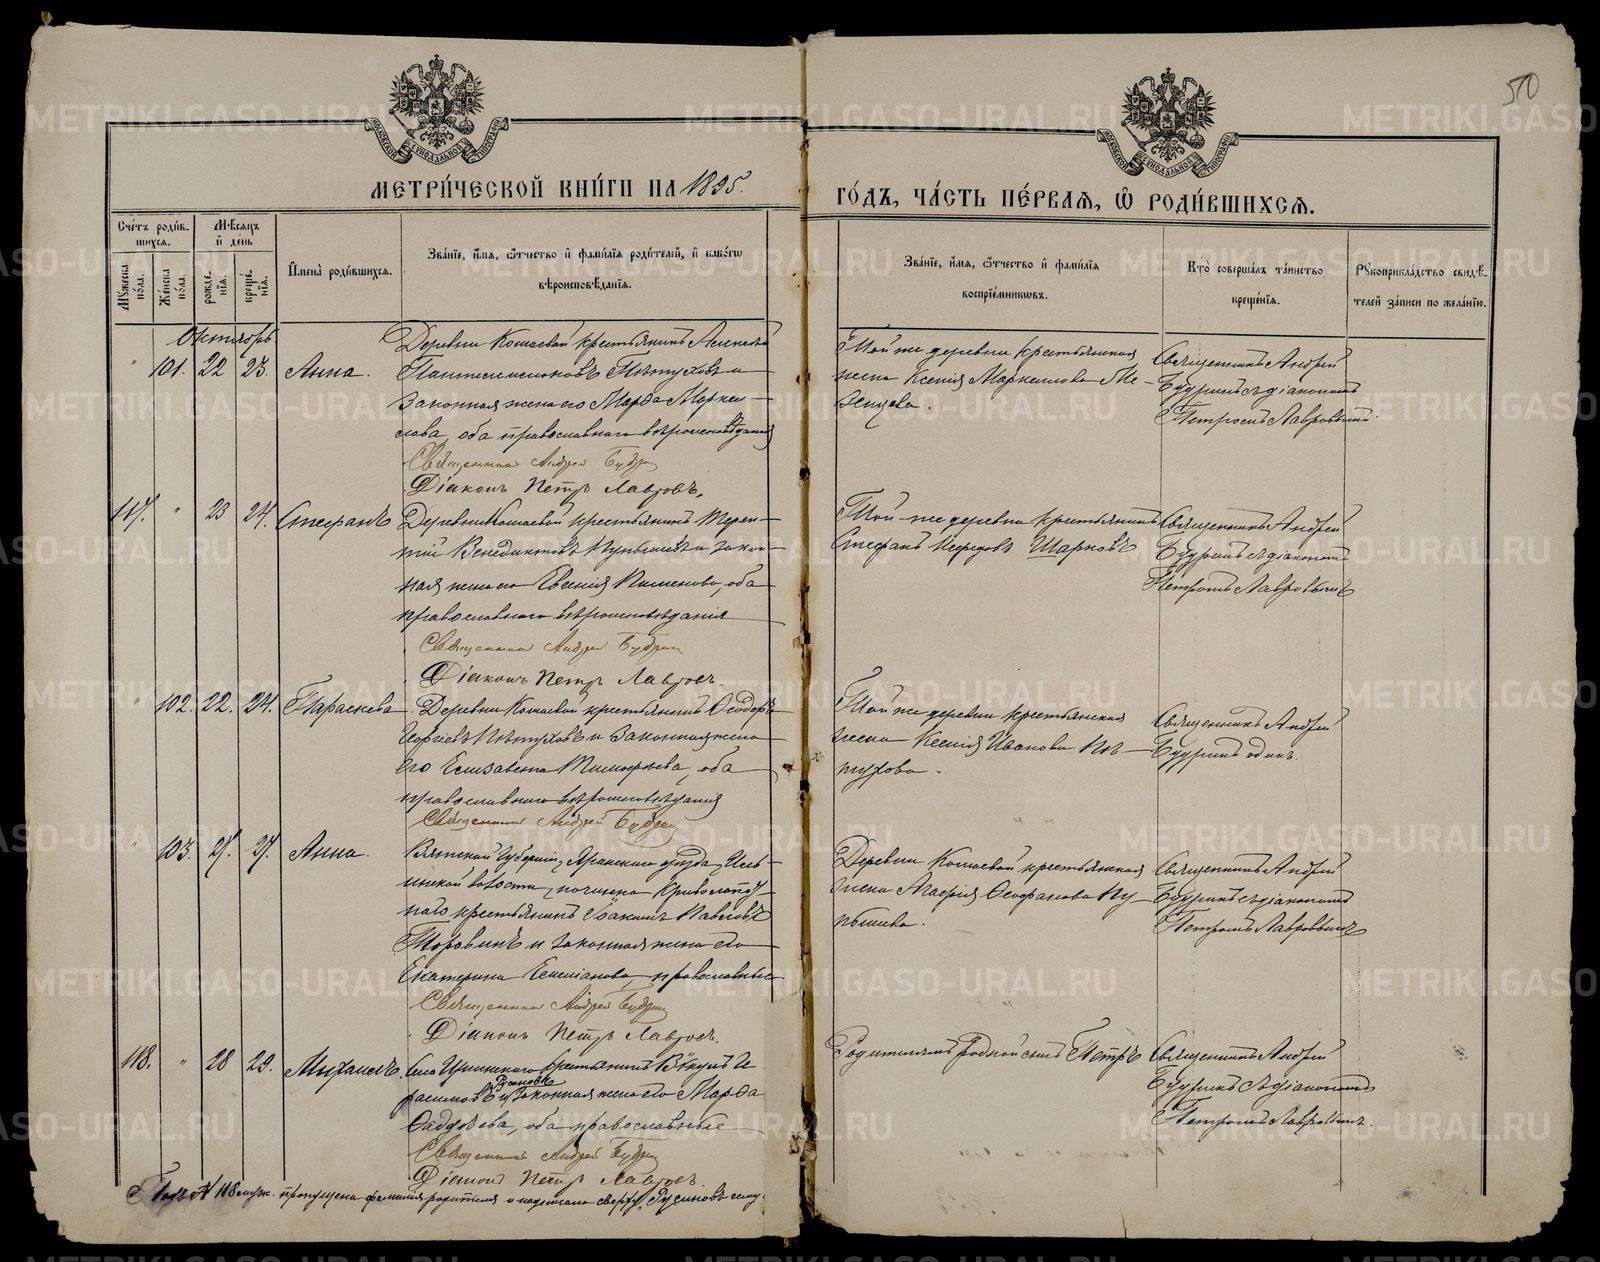 50
МОСКОВСКОЙ СѴНОДАЛЬНОЙ ТИПОГРАФІИ
МОСКОВСКОЙ СѴНОДАЛЬНОЙ ТИПОГРАФІИ
МЕТРИ́ЧЕСКОЙ КНИ́ГИ НА 1895.
ГО́ДЪ, ЧА́СТЬ ПЕ́РВАѦ, Ѡ҆ РОДИ́ВШИХСѦ.
Счéтъ роди́в-
шихсѧ.
Мѣ́сѧцъ
и҆ де́нь
Мꙋ́жеска по́ла.
Же́нска по́ла.
рожде́-
нїѧ.
креще́-
нїѧ.
И҆мена̀ роди́вшихсѧ.
Зва́нїе, и҆́мѧ, ѻ҆́тчество и҆ фами́лїѧ роди́телей, и҆ како́гѡ
вѣроисповѣ́данїѧ.
Зва́нїе, и҆́мѧ, ѻ҆́тчество и҆ фами́лїѧ
воспрїе́мникѡвъ.
Кто̀ соверша́лъ та́инство
креще́нїѧ.
Рꙋкоприкла́дство свидѣ́-
телей за́писи по жела́нїю.
Октябрь
" 101. 22 23. Анна.
Деревни Кошаевой крестьянинъ Алексѣй
Пантелеимоновъ Пѣтуховъ и
законная жена его Марѳа Маркел-
лова, оба православнаго вѣроисповѣданія
Священникъ Андрей Будрин
Діаконъ Петръ Лавровъ.
Той же деревни крестьянская
жена Ксенія Маркеллова
Священникъ Андрей
Будринъ съ діакономъ
Петромъ Лавровымъ.
117. " 23 24. Стефанъ
Деревни Кошаевой крестьянинъ Терен-
тій Венедиктовъ Купышевъ и закон-
ная жена его Евгенія Пименова, оба
православнаго вѣроисповѣданія
Священникъ Андрей Будрин
Діаконъ Петръ Лавровъ.
Той-же деревни крестьянинъ
Стефанъ Шарковъ
Священникъ Андрей
Будринъ съ діакономъ
Петромъ Лавровымъ
" 102. 22. 24. Параскева
Деревни Кошаевой крестьянинъ Ѳеодоръ
Пѣтуховъ и законная жена
его Елисавета Тимоѳеева, оба
православнаго вѣроисповѣданія
Священникъ Андрей Будрин
Той же деревни крестьянская
жена Ксенія Иванова Пѣ-
тухова.
Священникъ Андрей
Будринъ одинъ.
" 103. 27. 27. Анна.
Вятской губерніи, Яранскаго уѣзда, Иль-
инской волости, починка
крестьянинъ Іоакимъ Павловъ
Торовинъ и законная жена его
Екатерина Емеліанова, православные
Священникъ Андрей Будрин
Діаконъ Петръ Лавровъ.
Деревни Кошаевой крестьянская
жена Агафія Ѳеофанова Ку-
пышева.
Священникъ Андрей
Будринъ съ діакономъ
Петромъ Лавровымъ
118. " 28 29. Михаилъ.
Села крестьянинъ Викулъ Ге-
Русиновъ
расимовъ и законная жена его Марѳа
Ѳаддѣева, оба православные
Священникъ Андрей Будрин
Діаконъ Петръ Лавровъ.
Родителямъ родной сынъ Петръ
Священникъ Андрей
Будринъ съ діакономъ
Петромъ Лавровымъ.
Подъ № 118 муж. пропущена фамилія родителя и надписано сверху „Русиновъ"
METRIKI.GASO-URAL.RU